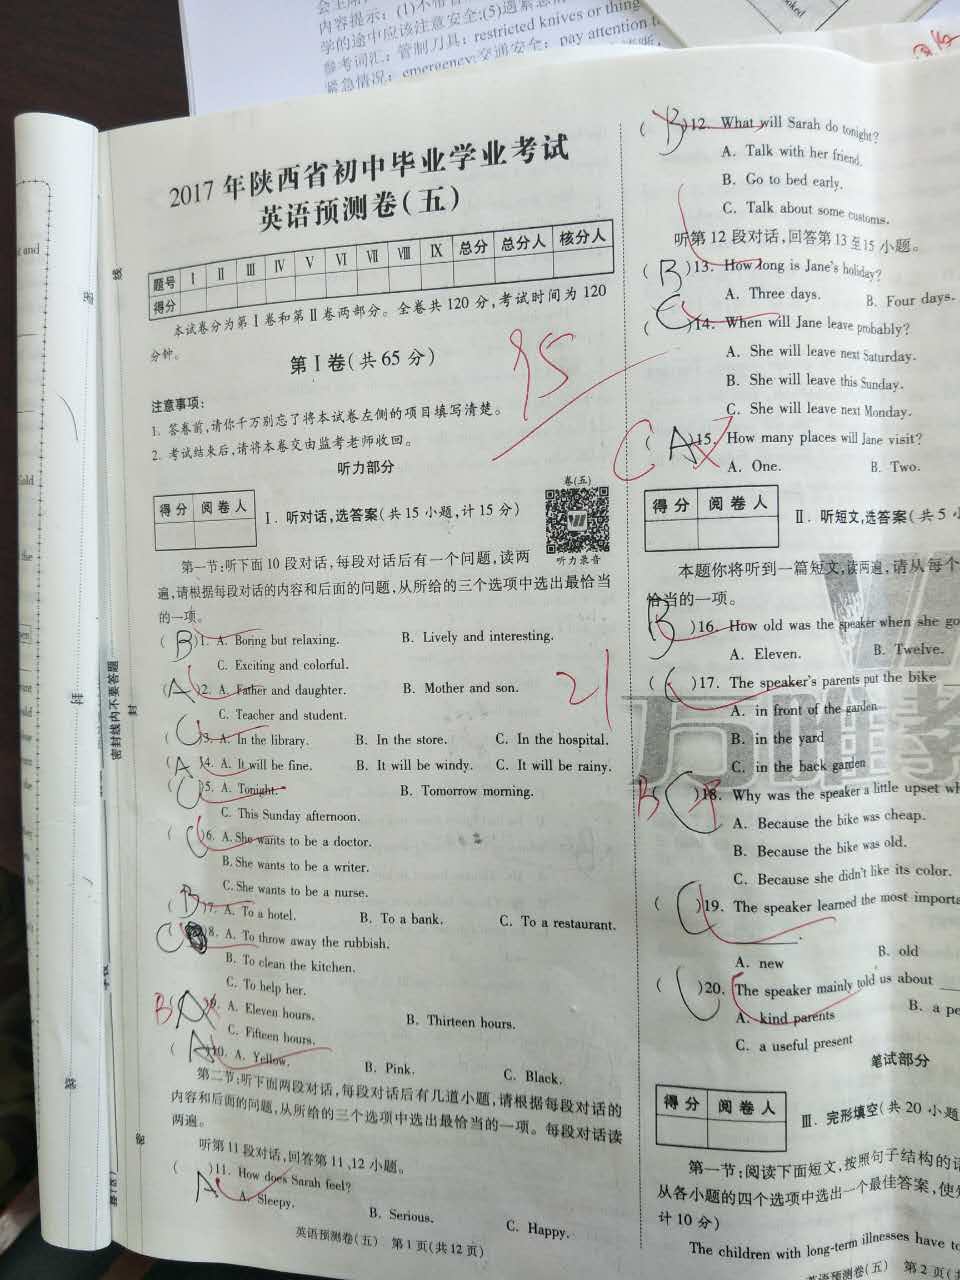 内容提示：(1)不带管
学的途中应该注意安全;(5)遇紧急情
参考词汇：管制刀具：restricted knives or thing
紧急情况：emergency;交通安全：pay attention t
2017年陕西省初中毕业学业考试
英语预测卷(五)
题号 Ⅰ Ⅱ Ⅲ Ⅳ Ⅴ Ⅵ Ⅶ Ⅷ Ⅸ 总分 总分人 核分人
得分
本试卷分为第Ⅰ卷和第Ⅱ卷两部分。全卷共120分,考试时间为120
分钟。
第Ⅰ卷(共65分)
95
注意事项：
1. 答卷前,请你千万别忘了将本试卷左侧的项目填写清楚。
2. 考试结束后,请将本卷交由监考老师收回。
听力部分
得分 阅卷人
Ⅰ. 听对话,选答案(共15小题,计15分)
卷(五)
听力录音
第一节:听下面10段对话,每段对话后有一个问题,读两
遍,请根据每段对话的内容和后面的问题,从所给的三个选项中选出最恰当
的一项。
( B )1. A. Boring but relaxing. B. Lively and interesting.
C. Exciting and colorful.
( A )2. A. Father and daughter. B. Mother and son.
C. Teacher and student.
21
( C )3. A. In the library. B. In the store. C. In the hospital.
( A )4. A. It will be fine. B. It will be windy. C. It will be rainy.
( C )5. A. Tonight. B. Tomorrow morning.
C. This Sunday afternoon.
( C )6. A. She wants to be a doctor.
B. She wants to be a writer.
C. She wants to be a nurse.
( B )7. A. To a hotel. B. To a bank. C. To a restaurant.
C ( )8. A. To throw away the rubbish.
B. To clean the kitchen.
C. To help her.
B ( A )9. A. Eleven hours. B. Thirteen hours.
C. Fifteen hours.
( A )10. A. Yellow. B. Pink. C. Black.
第二节:听下面两段对话,每段对话后有几道小题,请根据每段对话的
内容和后面的问题,从所给的三个选项中选出最恰当的一项。每段对话读
两遍。
听第11段对话,回答第11、12小题。
( A )11. How does Sarah feel?
A. Sleepy. B. Serious. C. Happy.
英语预测卷(五) 第1页(共12页)
( B )12. What will Sarah do tonight?
A. Talk with her friend.
B. Go to bed early.
C. Talk about some customs.
听第12段对话,回答第13至15小题。
( B )13. How long is Jane's holiday?
A. Three days. B. Four days.
( C )14. When will Jane leave probably?
A. She will leave next Saturday.
B. She will leave this Sunday.
C. She will leave next Monday.
C ( A )15. How many places will Jane visit?
A. One. B. Two.
得分 阅卷人
Ⅱ. 听短文,选答案(共5小
本题你将听到一篇短文,读两遍,请从每个
恰当的一项。
( B )16. How old was the speaker when she go
A. Eleven. B. Twelve.
( C )17. The speaker's parents put the bike
A. in front of the garden
B. in the yard
C. in the back garden
B ( C )18. Why was the speaker a little upset wh
A. Because the bike was cheap.
B. Because the bike was old.
C. Because she didn't like its color.
( C )19. The speaker learned the most importa
A. new B. old
( C )20. The speaker mainly told us about
A. kind parents B. a pe
C. a useful present
笔试部分
得分 阅卷人
Ⅲ. 完形填空(共20小题
第一节:阅读下面短文,按照句子结构的语
从各小题的四个选项中选出一个最佳答案,使短
计10分)
The children with long-term illnesses have to
英语预测卷(五) 第2页(共
密封线内不要答题